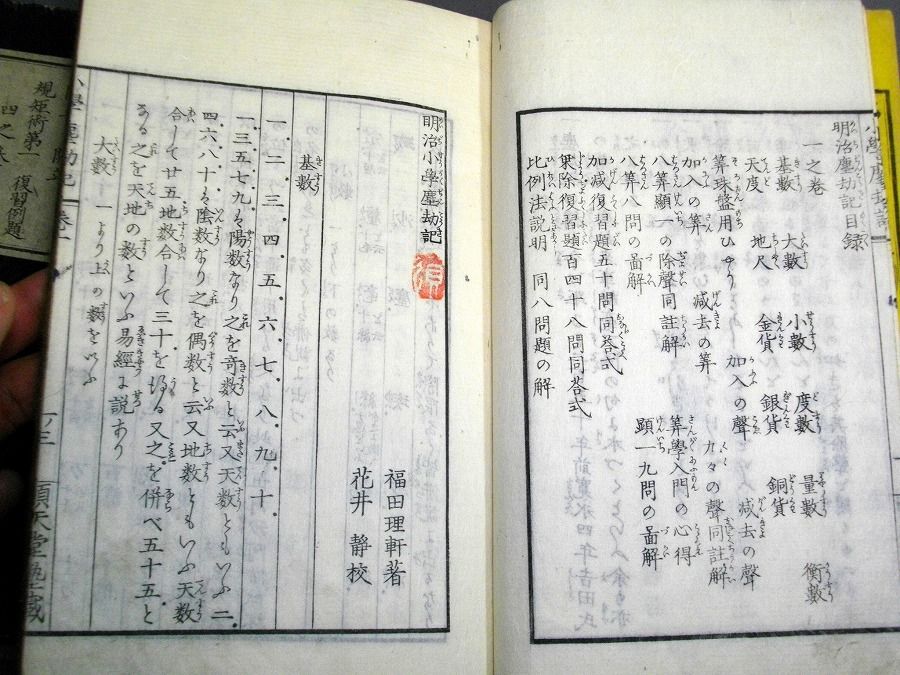 小學塵劫記
明治塵劫記目録
一之巻
基數 大數 小數 度數 量數 衡數
天度 地尺 金貨 銀貨 銅貨
算珠盤用ひやう 加入の聲 減去の聲
加入の算 減去の算 九々の聲同註解
八算顯一の除聲同註解 算學入門の心得
八算八問の啚解 顕一九問の啚解
加減復習題五十問同答式
乗除復習題百四十八問同荅式
比例法説明 同八問題の解
明治小學塵劫記
福田理軒著
花井静校
基數
一.二.三.四.五.六.七.八.九.十.
一三五七九は陽數なり之を奇数と云又天数ともいふ二.
四六八十は陰数なり之を偶数と云又地数ともいふ天数
合して廿五地数合して三十を得る又之を併べ五十五と
なる之を天地の數といふ易經に説あり
大數 一より上の数をいふ
小學塵劫記 巻一 順天堂塾藏
規矩術第一 復習例題
四之巻